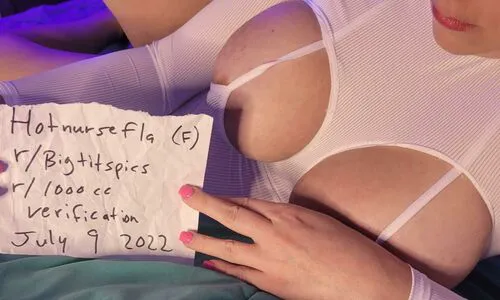 Hotnursefla (F)
r/Bigtitspics
r/1000cc
verification
July 9 2022